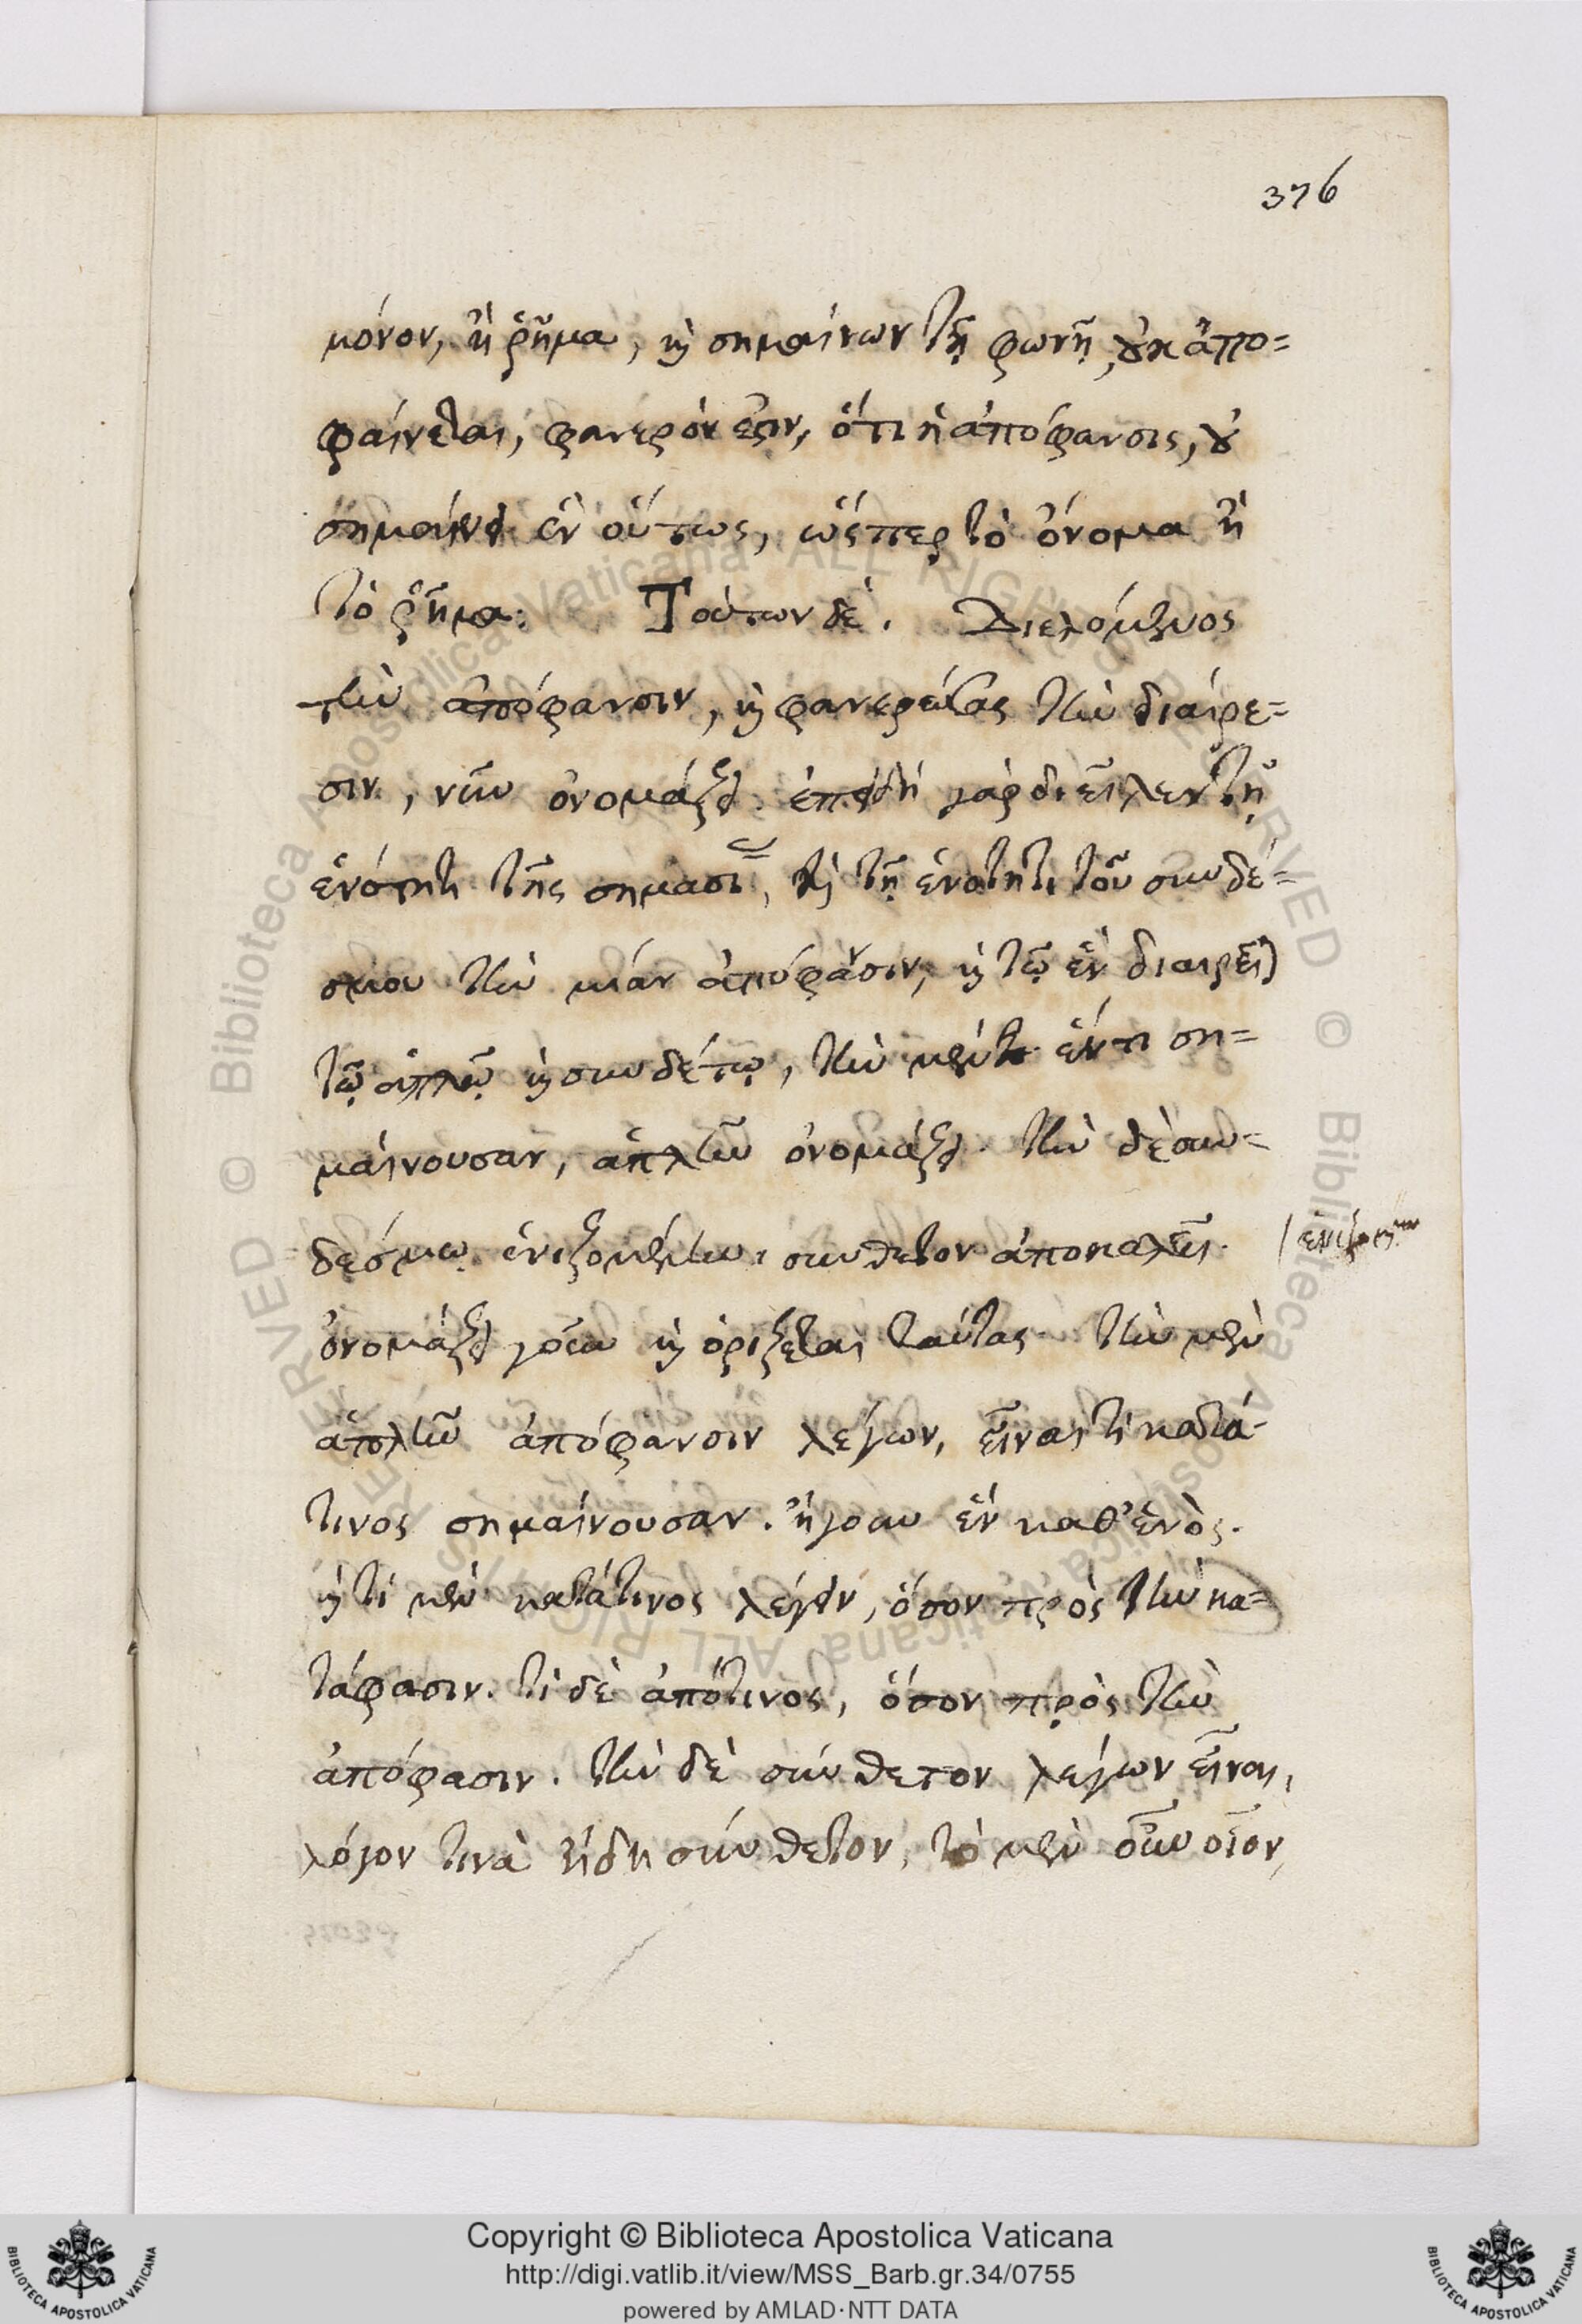 376
μόνον, ἢ ῥῆμα, καὶ σημαίνων τῇ φωνῇ, οὐκ ἀπο=
φαίνεται, φανερόν ἐστιν, ὅτι ἡ ἀπόφανσις, οὐ
σημαίνει ἓν οὕτως, ὥσπερ τὸ ὄνομα ἢ
τὸ ῥῆμα. Τούτων δὲ. Διελόμενος
τὴν ἀπόφανσιν, καὶ φανερώσας τὴν διαίρε=
σιν, νῦν ὀνομάζει. ἐπειδὴ γὰρ διεῖλεν τῇ
ἑνότητι τῆς σημασί, καὶ τῇ ἑνότητι τοῦ συνδέ=
σμου τὴν μίαν ἀπόφανσιν, καὶ τῷ ἓν διαιρεῖ
τῷ ἁπλῷ καὶ συνδέτῳ, τὴν μὲν ἕν τι ση=
μαίνουσαν, ἁπλῆν ὀνομάζει. τὴν δὲ συν=
δεσμῳ ἑνιζομένην, συνθετον ἀποκαλεῖ.
ὀνομάζει γοῦν καὶ ὁρίζεται ταύτας. τὴν μὲν
ἁπλῆν ἀπόφανσιν λέγων, εἶναι τὶ κατά
τινος σημαίνουσαν. ἤγουν ἓν καθ' ἑνὸς.
καὶ τὶ μὲν κατάτινος λέγειν, ὅσον πρὸς τὴν κα=
τάφασιν. τὶ δὲ ἀπότινος, ὅσον πρὸς τὴν
ἀπόφασιν. τὴν δὲ σύνθετον λέγων εἶναι,
λόγον τινὰ ἤδη σύνθετον, τὸ μὲν οὖν οἷον,
Copyright © Biblioteca Apostolica Vaticana
http://digi.vatlib.it/view/MSS_Barb.gr.34/0755
powered by AMLAD·NTT DATA
BIBLIOTECA APOSTOLICA VATICANA
BIBLIOTECA APOSTOLICA VATICANA